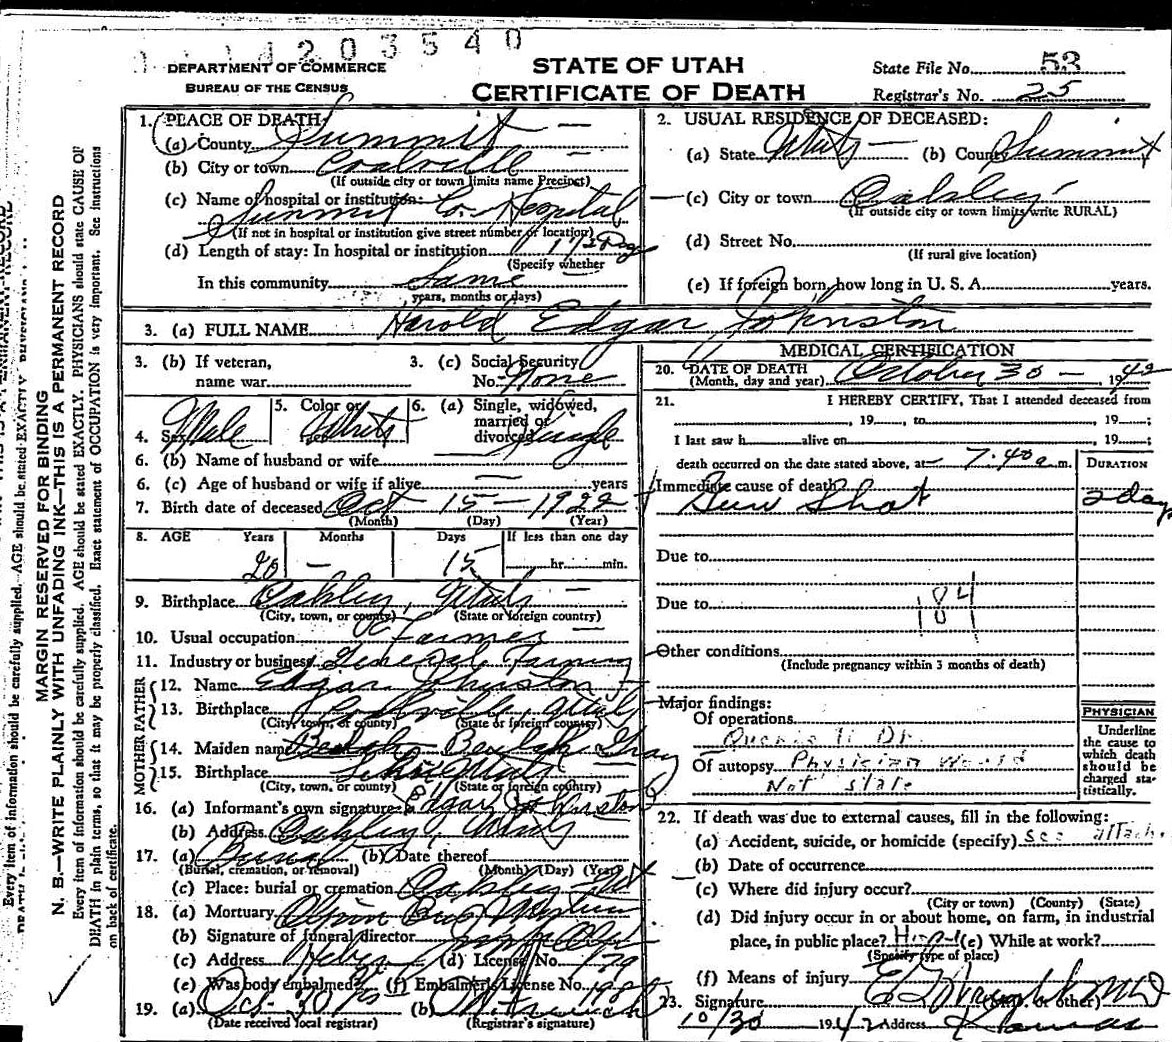 1203540
DEPARTMENT OF COMMERCE
BUREAU OF THE CENSUS
STATE OF UTAH
CERTIFICATE OF DEATH
State File No. 53
Registrar's No. 25
1. PLACE OF DEATH:
(a) County Summit
(b) City or town Coalville
(If outside city or town limits name Precinct)
(c) Name of hospital or institution:
Summit Co. Hospital
(If not in hospital or institution give street number or location)
(d) Length of stay: In hospital or institution 1 1/2 Day
(Specify whether
In this community Same
years, months or days)
2. USUAL RESIDENCE OF DECEASED:
(a) State Utah (b) County Summit
(c) City or town Oakley
(If outside city or town limits write RURAL)
(d) Street No.
(If rural give location)
(e) If foreign born, how long in U. S. A. years.
3. (a) FULL NAME Harold Edgar Johnston
3. (b) If veteran,
name war
3. (c) Social Security
No. None
4. Sex Male
5. Color or
race White
6. (a) Single, widowed,
married or
divorced Single
6. (b) Name of husband or wife
6. (c) Age of husband or wife if alive years
7. Birth date of deceased Oct 15 - 1922
(Month) (Day) (Year)
8. AGE Years Months Days If less than one day
20 - 15 hr. min.
9. Birthplace Oakley, Utah
(City, town, or county) (State or foreign country)
10. Usual occupation Farmer
11. Industry or business General Farming
FATHER
12. Name Edgar Johnston
13. Birthplace Utah
(City, town, or county) (State or foreign country)
MOTHER
14. Maiden name Beulah
15. Birthplace Utah
(City, town, or county) (State or foreign country)
16. (a) Informant's own signature Edgar Johnston
(b) Address Oakley, Utah
17. (a) Burial (b) Date thereof
(Burial, cremation, or removal) (Month) (Day) (Year)
(c) Place: burial or cremation Oakley
18. (a) Mortuary Olpin Bros
(b) Signature of funeral director
(c) Address Heber (d) License No. 179
(e) Was body embalmed? (f) Embalmer's License No.
19. (a) Oct. 30 (b)
(Date received local registrar) (Registrar's signature)
MEDICAL CERTIFICATION
20. DATE OF DEATH
(Month, day and year) October 30 - 1942
21. I HEREBY CERTIFY, That I attended deceased from
, 19 , to , 19 ;
I last saw h alive on , 19 ;
death occurred on the date stated above, at 7:40 a. m.
DURATION
Immediate cause of death
Gun Shot 2 days
Due to
Due to 184
Other conditions
(Include pregnancy within 3 months of death)
Major findings:
Of operations
Of autopsy Physician Would
Not state
PHYSICIAN
Underline
the cause to
which death
should be
charged sta-
tistically.
22. If death was due to external causes, fill in the following:
(a) Accident, suicide, or homicide (specify) See attach
(b) Date of occurrence
(c) Where did injury occur?
(City or town) (County) (State)
(d) Did injury occur in or about home, on farm, in industrial
place, in public place? (e) While at work?
(Specify type of place)
(f) Means of injury
23. Signature or other)
10/30 1942 Address Kamas
MARGIN RESERVED FOR BINDING
N. B.—WRITE PLAINLY WITH UNFADING INK—THIS IS A PERMANENT RECORD
Every item of information should be carefully supplied. AGE should be stated EXACTLY. PHYSICIANS should state CAUSE OF
DEATH in plain terms, so that it may be properly classified. Exact statement of OCCUPATION is very important. See instructions
on back of certificate.